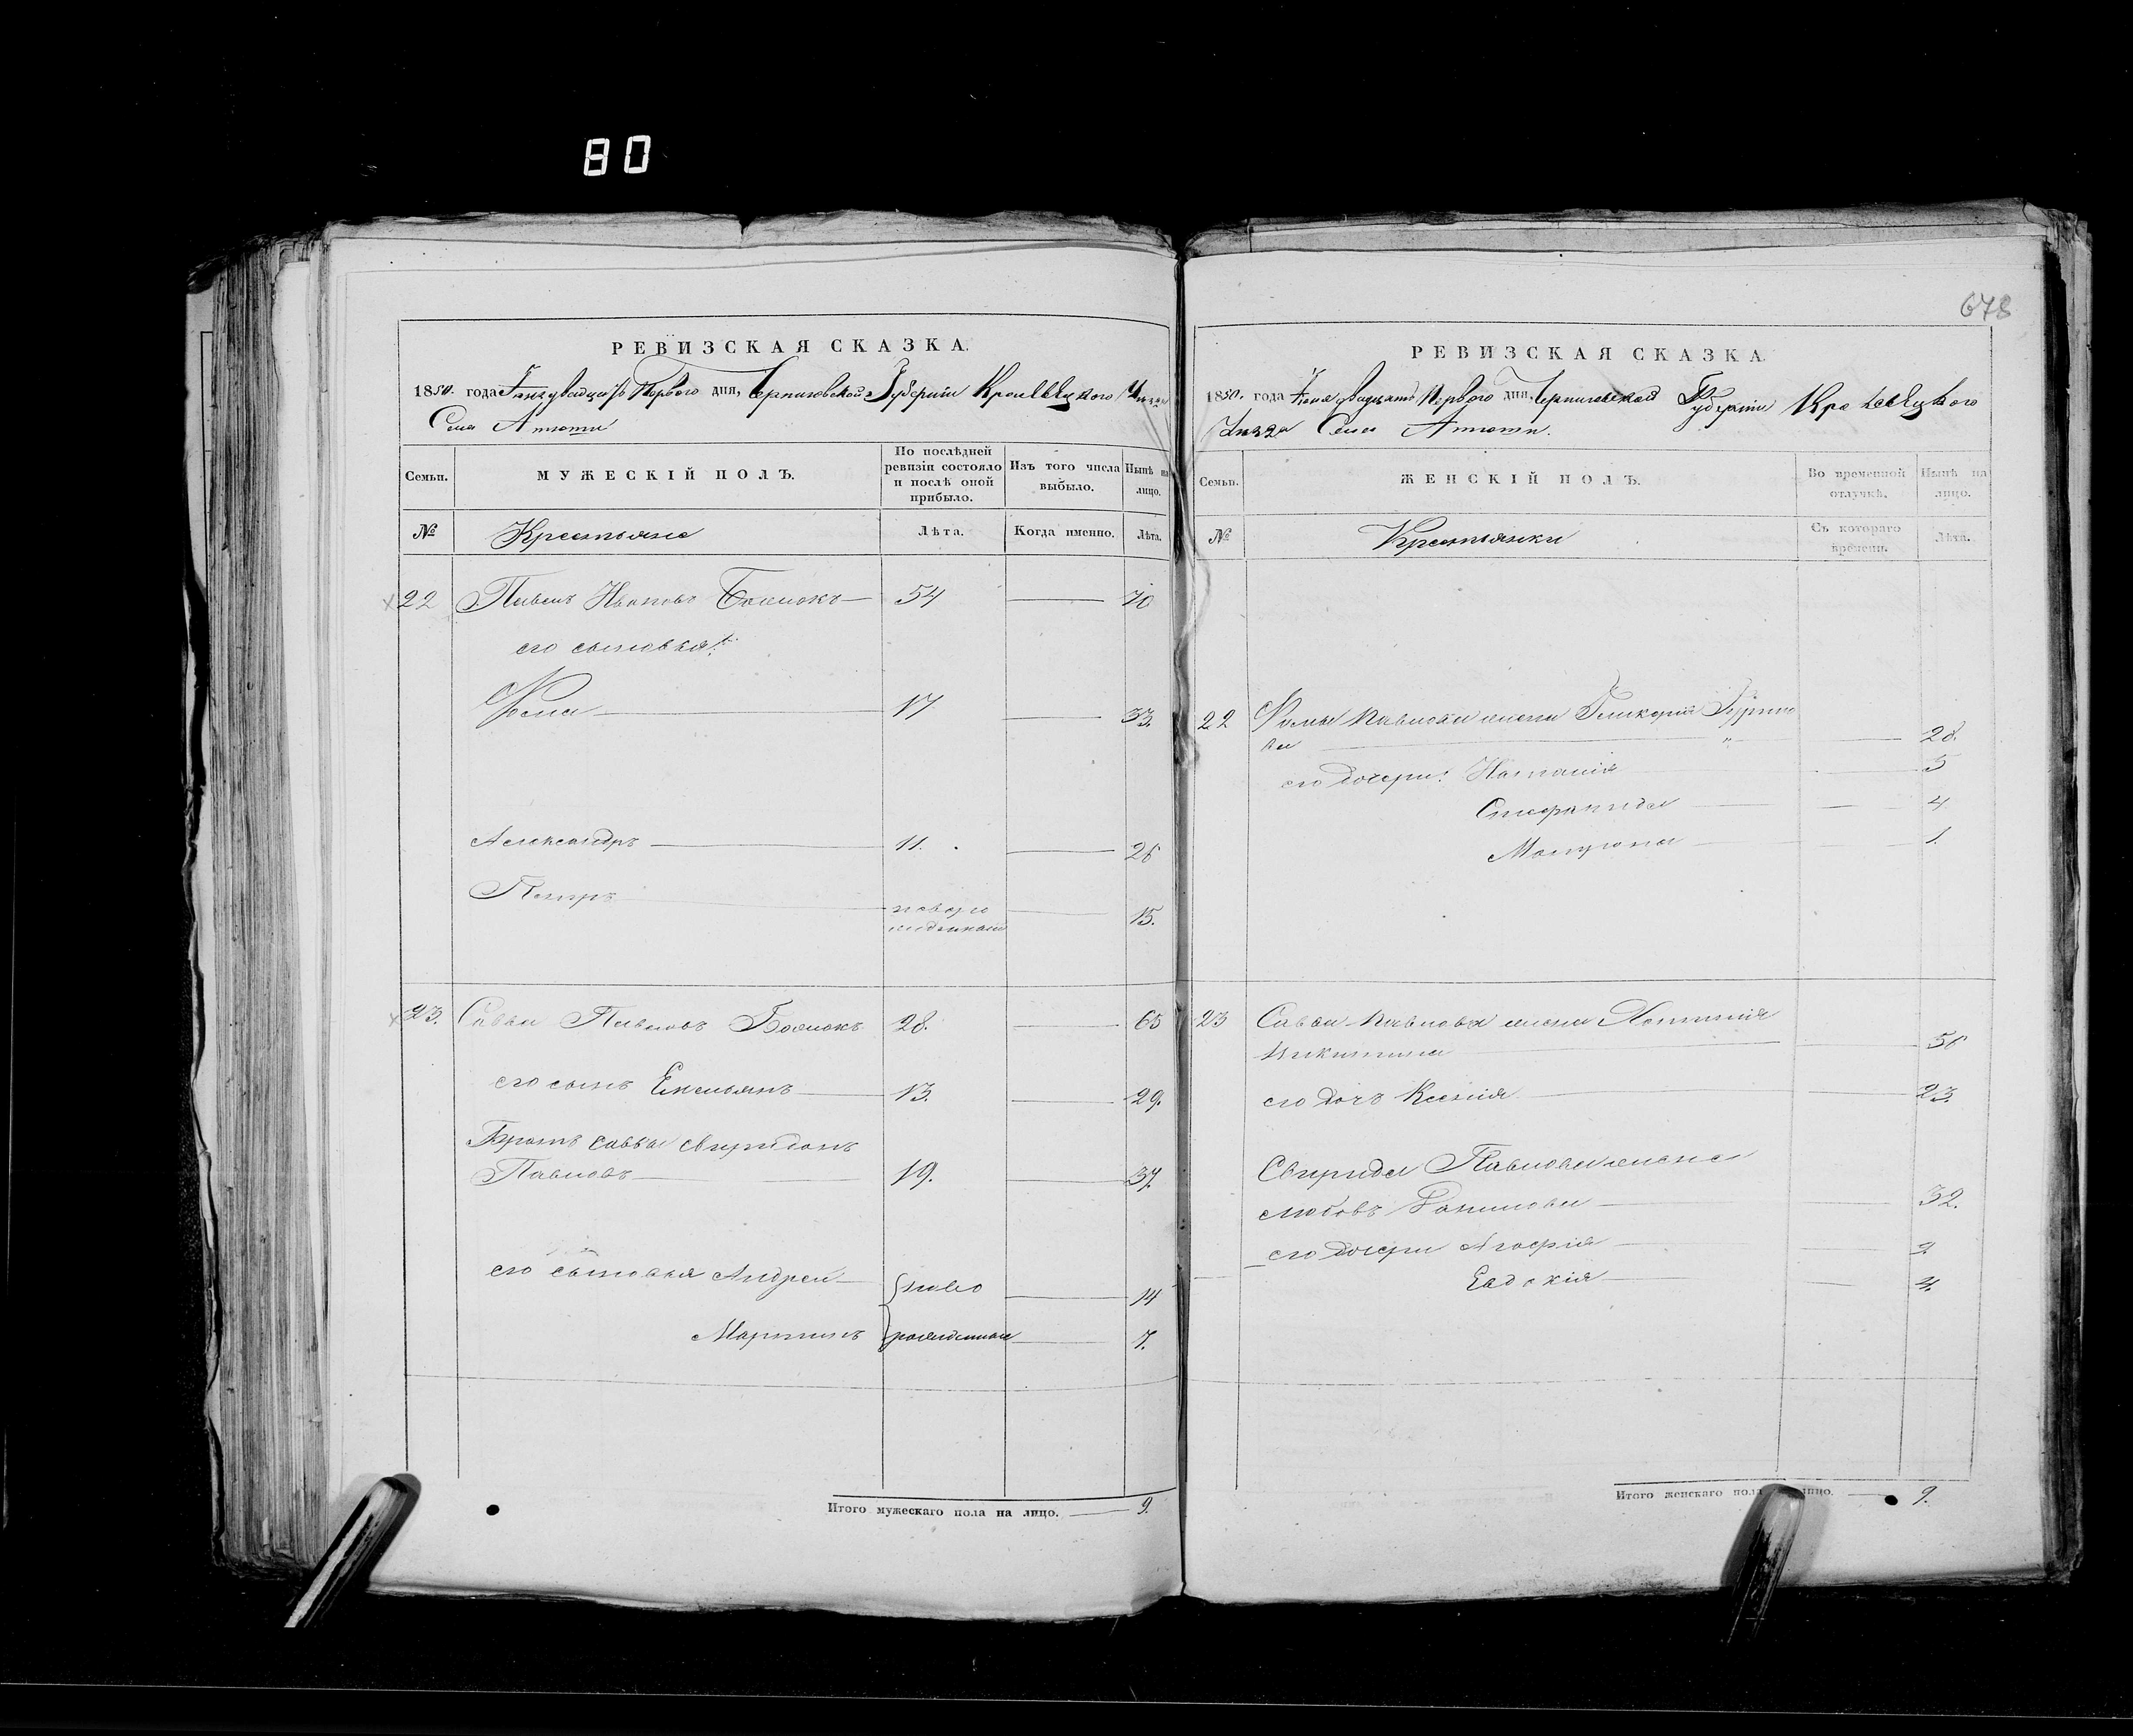 80
РЕВИЗСКАЯ СКАЗКА.
1850. года Генваря двадцать Первого дня, Черниговской Губернии Кролевецкого Уезда
Села
Семьи.
МУЖЕСКІЙ ПОЛЪ.
По послѣдней ревизіи состояло и послѣ оной прибыло.
Изъ того числа выбыло.
Нынѣ на лицо.
№
Крестьяне
Лѣта.
Когда именно.
Лѣта.
22 Павелъ Ивановъ 54 70
его сыновья:
Фома 17 33.
Александръ 11. 26
Петръ новорожденный 15.
23. Савва Павловъ 28. 65
его сынъ Емельянъ 13. 29.
Братъ Саввы Свиридонъ
Павловъ 19. 37.
его сыновья Андрей ново 14
Мартинъ рожденные 7.
Итого мужескаго пола на лицо. 9.
678
РЕВИЗСКАЯ СКАЗКА
1850. года двадцать Первого дня, Черниговской Губерніи Кролевецкого
Уезда Села
Семьи.
ЖЕНСКІЙ ПОЛЪ.
Во временной отлучкѣ.
Нынѣ на лицо.
№
Крестьянки
Съ котораго времени.
Лѣта.
22 Фомы Павлова жена Гликерія
28.
его дочери: Наталія 5
Стефанида 4
1.
23 Саввы Павлова жена
Никитина 56
его дочь Ксенія 23.
Свирида Павлова жена
Любовь 32.
его дочери Агафія 9
Евдокія 4
Итого женскаго пола лицо. 9.